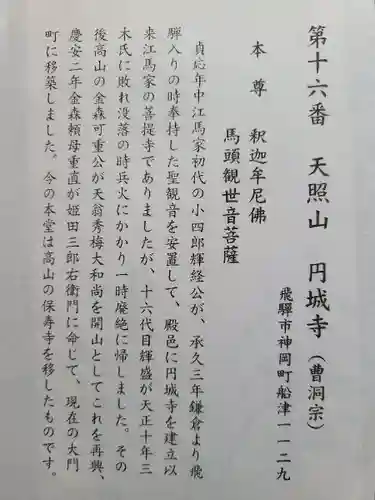 第十六番　天照山　円城寺（曹洞宗）
飛騨市神岡町船津一一二九
本　尊　釈迦牟尼佛
馬頭観世音菩薩
貞応年中江馬家初代の小四郎輝経公が、承久三年鎌倉より飛
騨入りの時奉持した聖観音を安置して、殿邑に円城寺を建立以
来江馬家の菩提寺でありましたが、十六代目輝盛が天正十年三
木氏に敗れ没落の時兵火にかかり一時廃絶に帰しました。その
後高山の金森可重公が天翁秀梅大和尚を開山としてこれを再興、
慶安二年金森頼母重直が姫田三郎右衛門に命じて、現在の大門
町に移築しました。今の本堂は高山の保寿寺を移したものです。